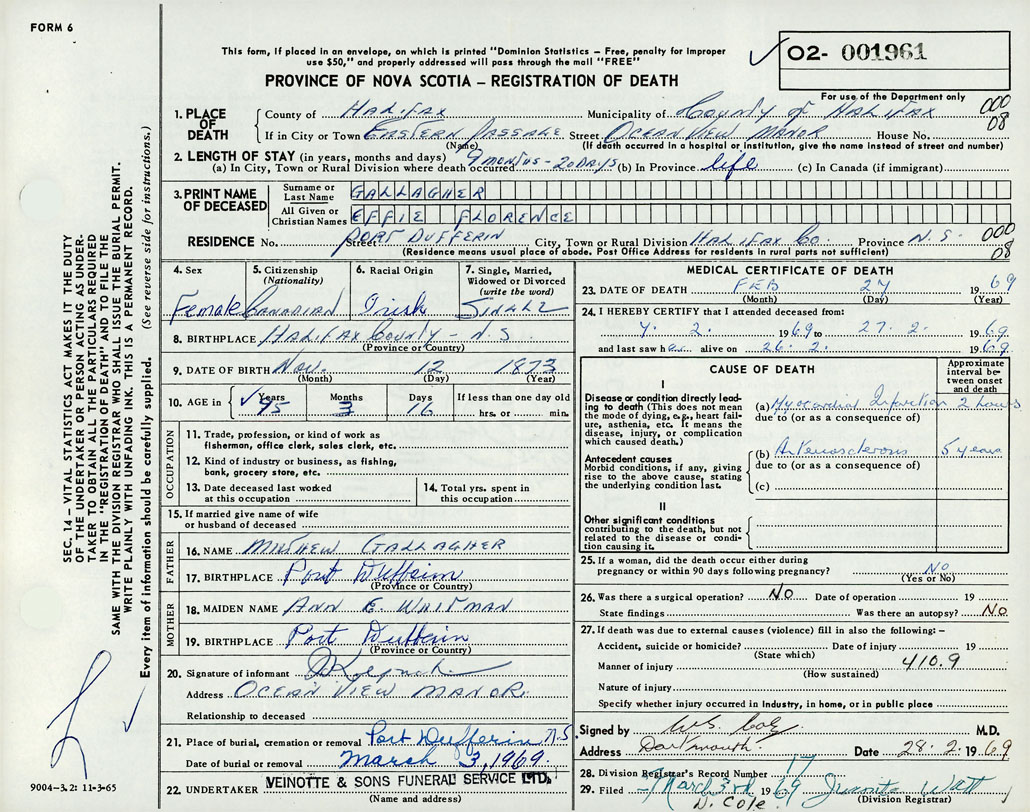 FORM 6
This form, if placed in an envelope, on which is printed "Dominion Statistics – Free, penalty for improper
use $50," and properly addressed will pass through the mail "FREE"
PROVINCE OF NOVA SCOTIA – REGISTRATION OF DEATH
✓ 02- 001961
For use of the Department only
000
08
SEC. 14 – VITAL STATISTICS ACT MAKES IT THE DUTY
OF THE UNDERTAKER OR PERSON ACTING AS UNDER-
TAKER TO OBTAIN ALL THE PARTICULARS REQUIRED
IN THE "REGISTRATION OF DEATH" AND TO FILE THE
SAME WITH THE DIVISION REGISTRAR WHO SHALL ISSUE THE BURIAL PERMIT.
WRITE PLAINLY WITH UNFADING INK. THIS IS A PERMANENT RECORD.
Every item of information should be carefully supplied. (See reverse side for instructions.)
1. PLACE OF DEATH
County of HALIFAX Municipality of COUNTY OF HALIFAX
If in City or Town EASTERN PASSAGE Street OCEAN VIEW MANOR House No.
(Name) (If death occurred in a hospital or institution, give the name instead of street and number)
2. LENGTH OF STAY (in years, months and days)
(a) In City, Town or Rural Division where death occurred 9 MONTHS - 20 DAYS (b) In Province life (c) In Canada (if immigrant)
3. PRINT NAME OF DECEASED
Surname or Last Name GALLAGHER
All Given or Christian Names EFFIE FLORENCE
RESIDENCE No. Street PORT DUFFERIN City, Town or Rural Division HALIFAX CO. Province N.S. 000
08
(Residence means usual place of abode. Post Office Address for residents in rural parts not sufficient)
4. Sex Female
5. Citizenship (Nationality) CANADIAN
6. Racial Origin Irish
7. Single, Married, Widowed or Divorced (write the word) SINGLE
8. BIRTHPLACE HALIFAX COUNTY - N.S
(Province or Country)
9. DATE OF BIRTH NOV. 12 1873
(Month) (Day) (Year)
10. AGE in Years Months Days If less than one day old
✓ 95 3 16 hrs. or min.
OCCUPATION
11. Trade, profession, or kind of work as
fisherman, office clerk, sales clerk, etc.
12. Kind of industry or business, as fishing,
bank, grocery store, etc.
13. Date deceased last worked
at this occupation
14. Total yrs. spent in
this occupation
15. If married give name of wife
or husband of deceased
FATHER
16. NAME MATTHEW GALLAGHER
17. BIRTHPLACE Port Dufferin
(Province or Country)
MOTHER
18. MAIDEN NAME ANN E. WHITMAN
19. BIRTHPLACE Port Dufferin
(Province or Country)
20. Signature of informant
Address OCEAN VIEW MANOR.
Relationship to deceased
21. Place of burial, cremation or removal Port Dufferin N.S.
Date of burial or removal March 3, 1969
22. UNDERTAKER VEINOTTE & SONS FUNERAL SERVICE LTD.
(Name and address)
9004-3.2: 11-3-65
MEDICAL CERTIFICATE OF DEATH
23. DATE OF DEATH FEB 27 1969
(Month) (Day) (Year)
24. I HEREBY CERTIFY that I attended deceased from:
2. 1969 to 27. 2. 1969
and last saw her alive on 26. 2. 1969
CAUSE OF DEATH
Approximate interval between onset and death
I
Disease or condition directly lead-
ing to death (This does not mean
the mode of dying, e.g., heart fail-
ure, asthenia, etc. It means the
disease, injury, or complication
which caused death.)
(a) Myocardial Infarction 2 hours
due to (or as a consequence of)
Antecedent causes
Morbid conditions, if any, giving
rise to the above cause, stating
the underlying condition last.
(b) Arteriosclerosis 5 years
due to (or as a consequence of)
(c)
II
Other significant conditions
contributing to the death, but not
related to the disease or condi-
tion causing it.
25. If a woman, did the death occur either during
pregnancy or within 90 days following pregnancy? NO
(Yes or No)
26. Was there a surgical operation? NO Date of operation 19
State findings Was there an autopsy? NO
27. If death was due to external causes (violence) fill in also the following:–
Accident, suicide or homicide? Date of injury 19
(State which)
Manner of injury 410.9
(How sustained)
Nature of injury
Specify whether injury occurred in industry, in home, or in public place
Signed by W.S. Cole M.D.
Address Dartmouth. Date 28. 2. 1969
28. Division Registrar's Record Number 17
29. Filed March 3rd 1969 Juanita Watt
D. Cole (Division Registrar)